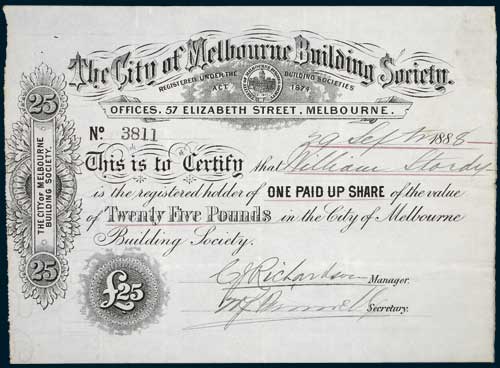 The City of Melbourne Building Society.
REGISTERED UNDER THE BUILDING SOCIETIES
ACT 1874
OFFICES. 57 ELIZABETH STREET, MELBOURNE.
25
THE CITY OF MELBOURNE
BUILDING SOCIETY.
25
No. 3811
29 Septr 1888
This is to Certify that William Stordy
is the registered holder of ONE PAID UP SHARE of the value
of Twenty Five Pounds in the City of Melbourne
Building Society.
£25
Richardson Manager.
Secretary.